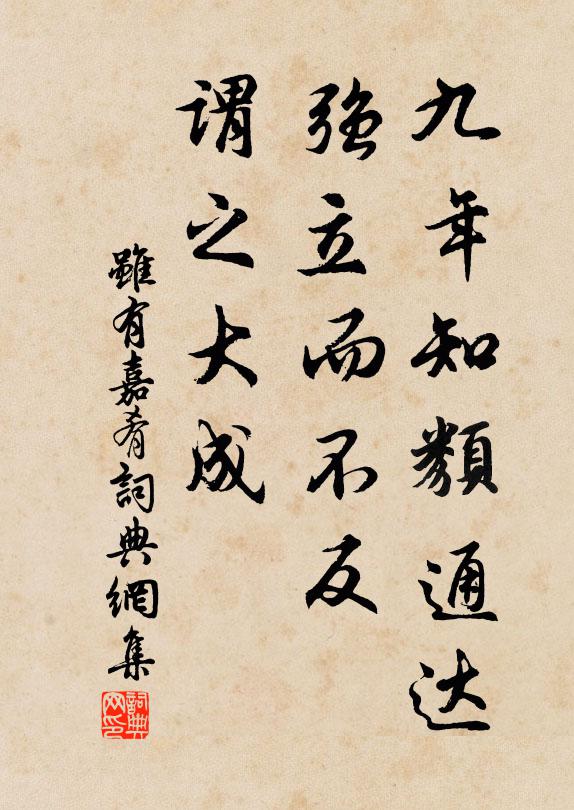 九年知類通达
强立而不反
謂之大成
雖有嘉肴詞典網集
詞典网印